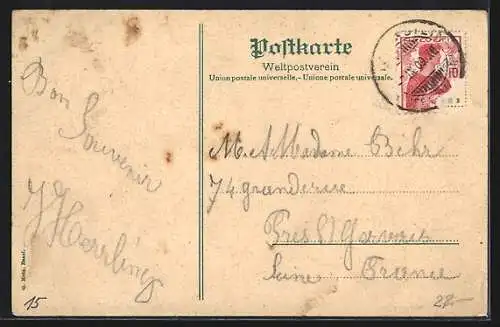 Postkarte
Weltpostverein
Union postale universelle.- Unione postale universale.
10
Bon
Souvenir
M et Madame Behr
74 grande rue
Pres St Gervais
Seine France
G. Metz, Basel.
15
22.-